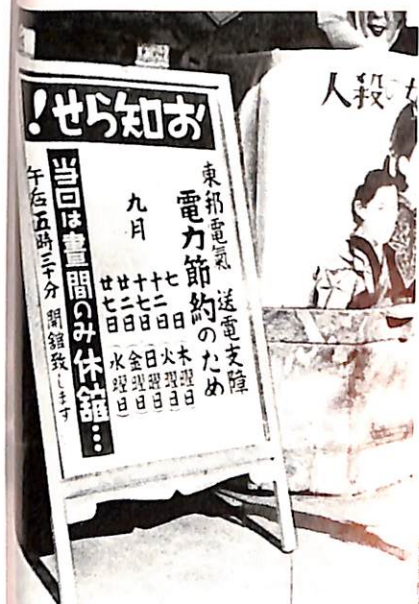 お知らせ！
東邦電氣 送電支障
電力節約のため
九月
七日（木曜日）
十二日（火曜日）
十七日（日曜日）
廿二日（金曜日）
廿七日（水曜日）
当日は晝間のみ休舘…
午后五時三十分 開舘致します
殺人